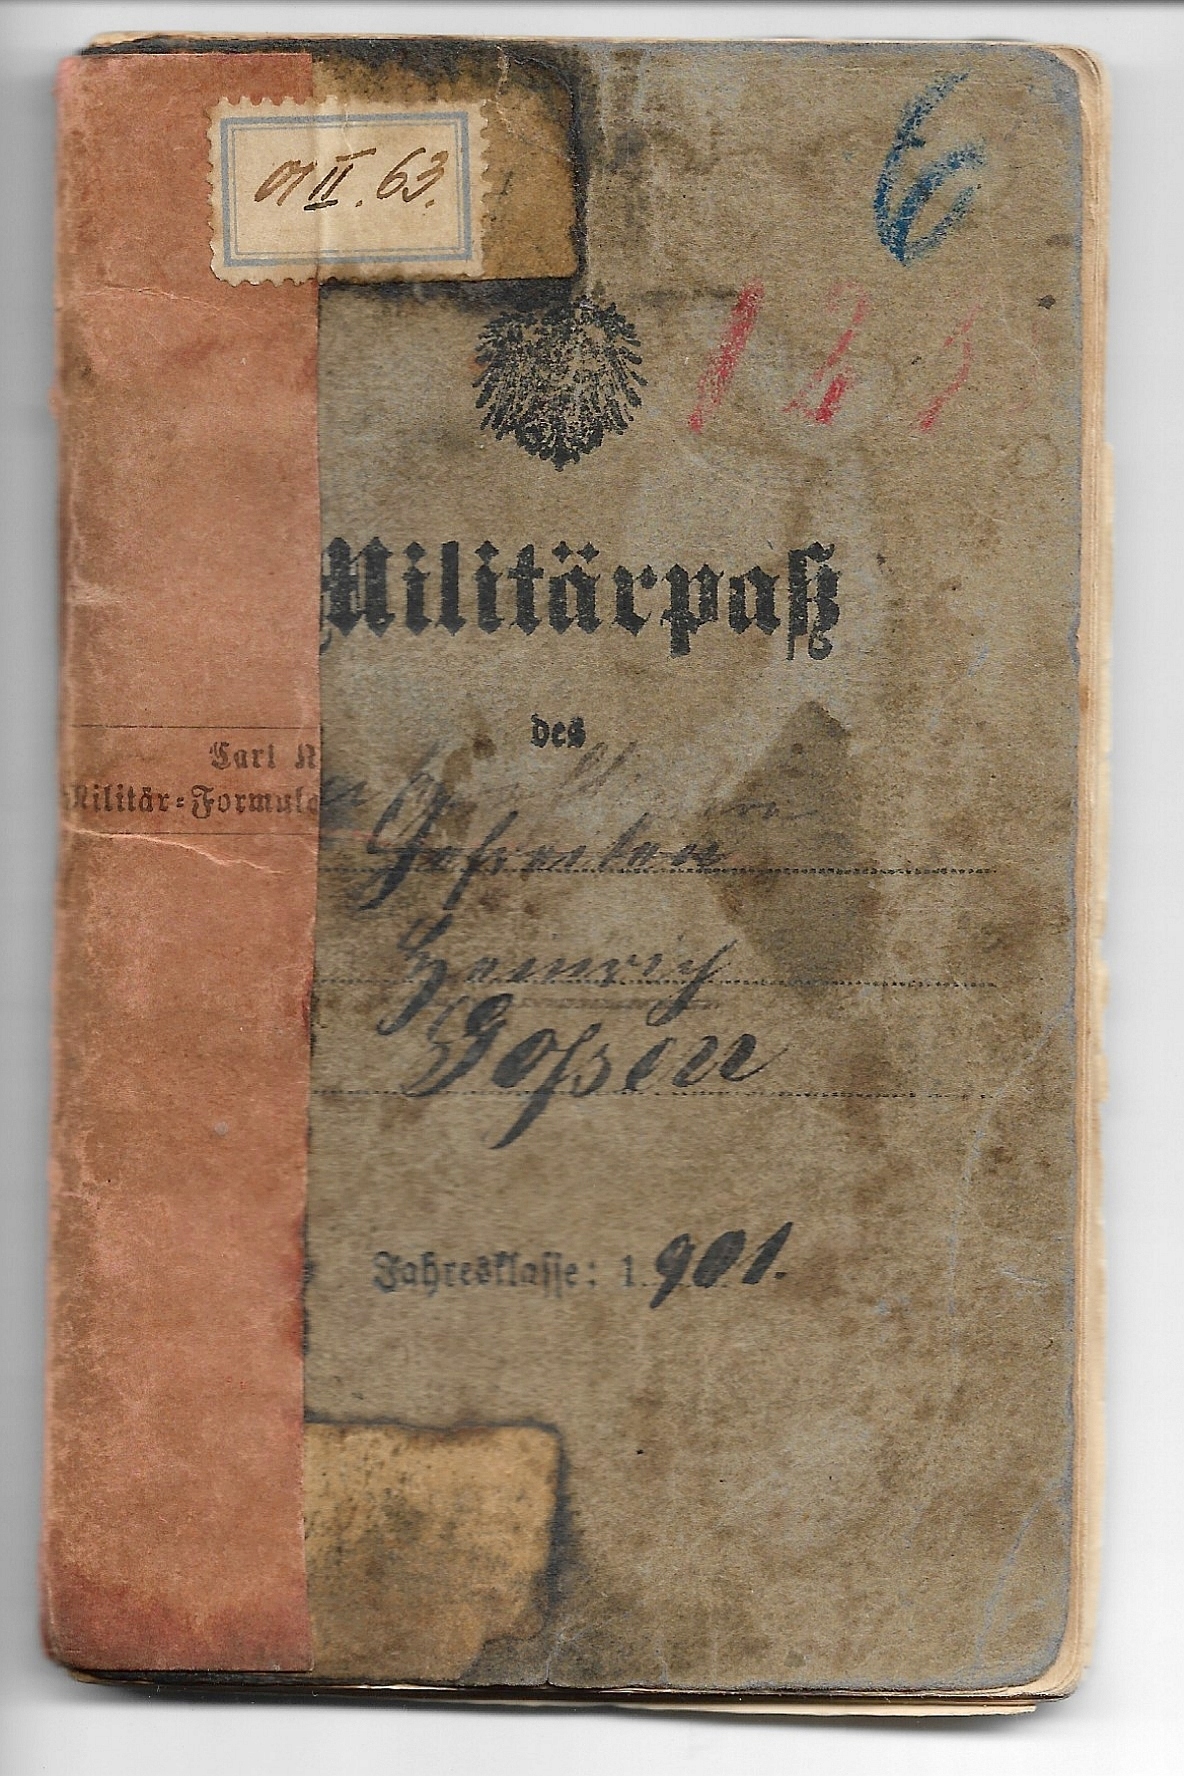 01 II. 63.
6
12
Militärpaß
des
Carl
Militär=Formula
Gefreiten
Heinrich
Goßen
Jahresklasse: 1901.